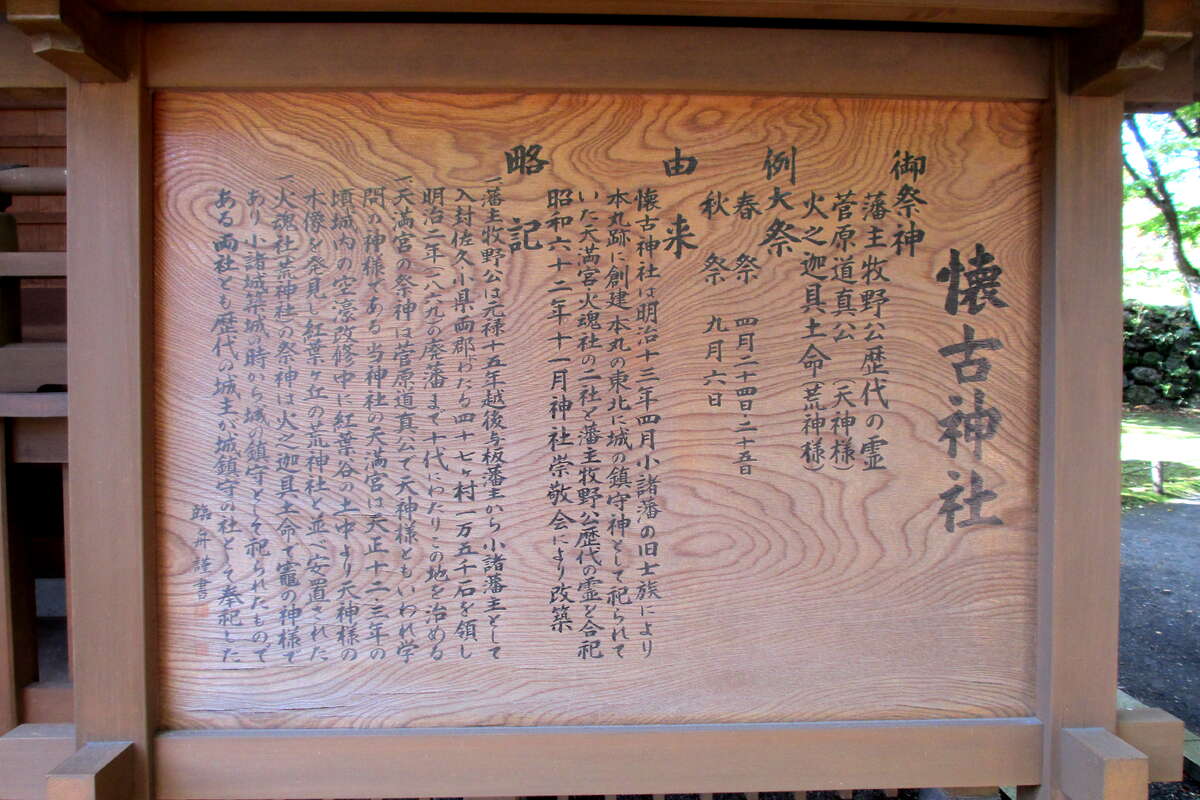 懐古神社
御祭神
藩主牧野公歴代の霊
菅原道真公（天神様）
火之迦具土命（荒神様）
例大祭
春祭　四月二十四日二十五日
秋祭　九月六日
由来
懐古神社は明治十三年四月小諸藩の旧士族により
本丸跡に創建本丸の東北に城の鎮守神として祀られて
いた天満宮火魂社の二社と藩主牧野公歴代の霊を合祀
昭和六十二年十一月神社崇敬会により改築
略記
一藩主牧野公は元禄十五年越後与板藩主から小諸藩主として
入封佐久小県両郡わたる四十七ヶ村一万五千石を領し
明治二年一八六九の廃藩まで十代にわたりこの地を治める
一天満宮の祭神は菅原道真公で天神様ともいわれ学
問の神様である当神社の天満宮は天正十二三年の
頃城内の空濠改修中に紅葉谷の土中より天神様の
木像を発見し紅葉ヶ丘の荒神社と並べ安置された
一火魂社荒神社の祭神は火之迦具土命で竈の神様で
あり小諸城築城の時から城の鎮守として祀られたもので
ある両社とも歴代の城主が城鎮守の社として奉祀した
臨舟謹書